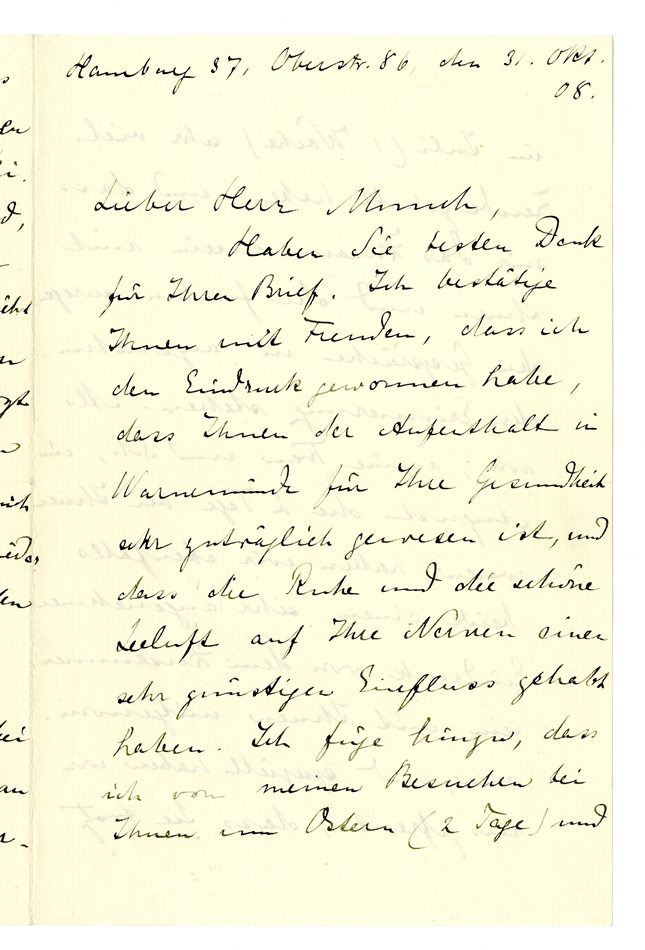 Hamburg 37, Oberstr. 86, den 31. Okt.
08.
Lieber Herr Munch,
Haben Sie besten Dank
für Ihren Brief. Ich bestätige
Ihnen mit Freuden, dass ich
den Eindruck gewonnen habe,
dass Ihnen der Aufenthalt in
Warnemünde für Ihre Gesundheit
sehr zuträglich gewesen ist, und
dass die Ruhe und die schöne
Seeluft auf Ihre Nerven einen
sehr günstigen Einfluss gehabt
haben. Ich füge hinzu, dass
ich von meinen Besuchen bei
Ihnen um Ostern (2 Tage) und